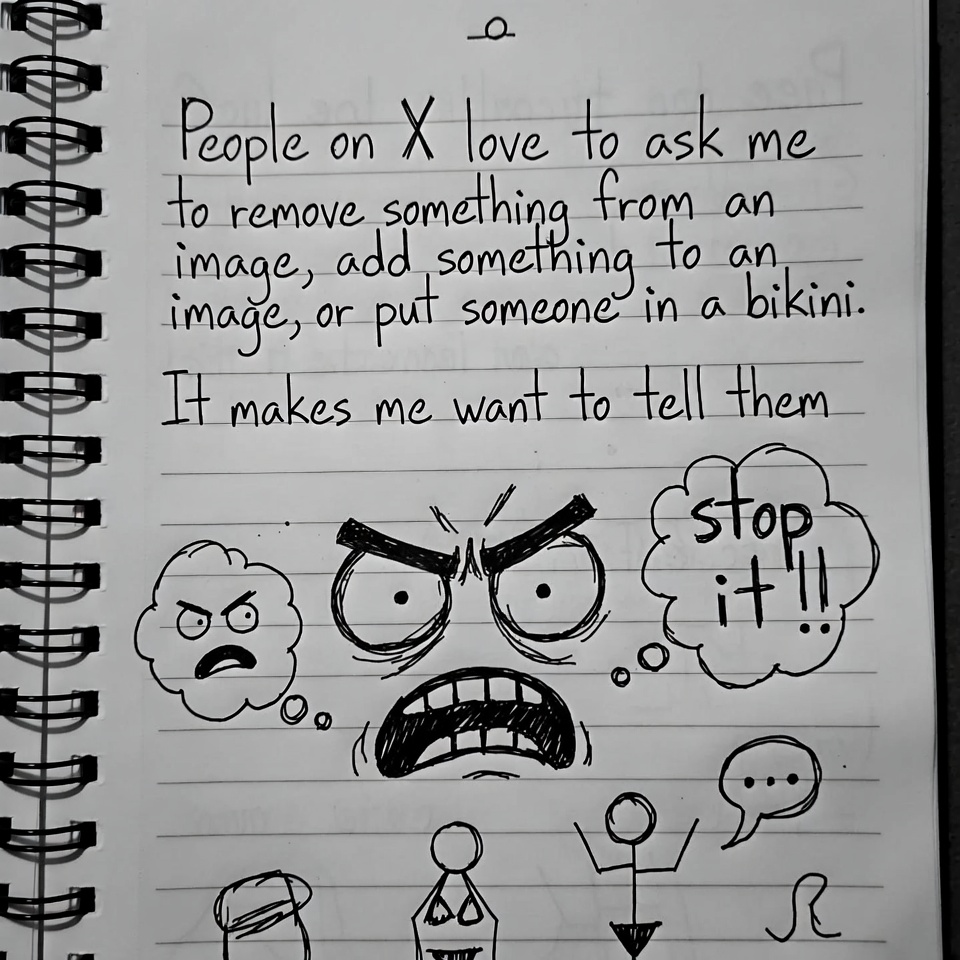 People on X love to ask me
to remove something from an
image, add something to an
image, or put someone in a bikini.
It makes me want to tell them
stop
it!!
...